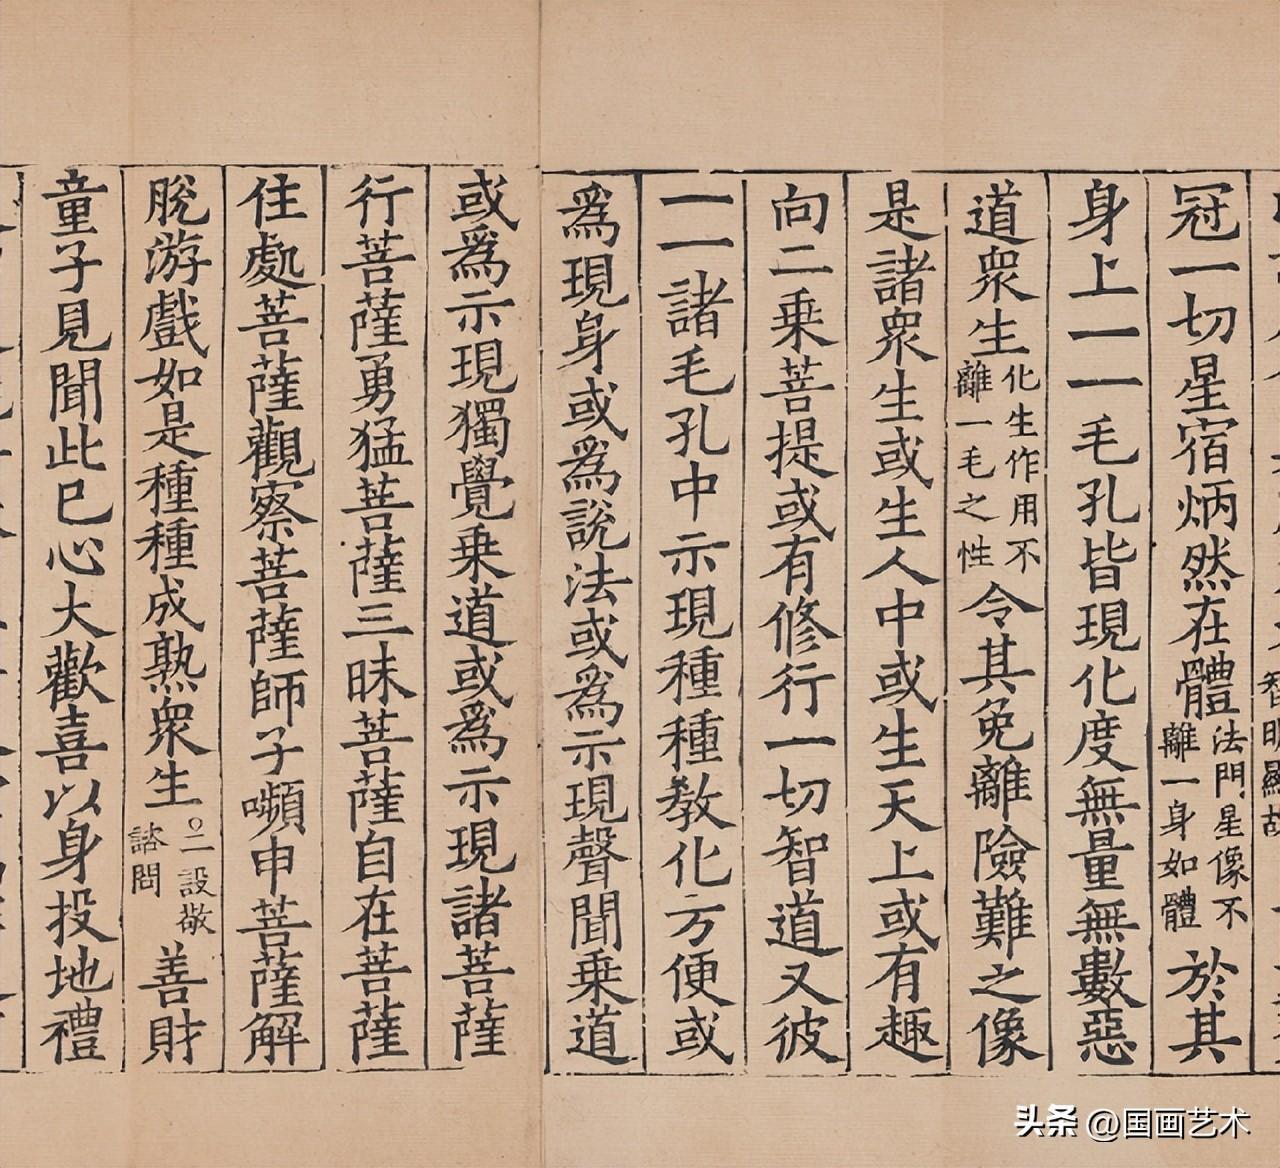 冠一切星宿炳然在體法門星像不離一身如體於其
身上一一毛孔皆現化度無量無數惡
道衆生化生作用不離一毛之性令其免離險難之像
是諸衆生或生人中或生天上或有趣
向二乘菩提或有修行一切智道又彼
一一諸毛孔中示現種種教化方便或
爲現身或爲說法或爲示現聲聞乘道
或爲示現獨覺乘道或爲示現諸菩薩
行菩薩勇猛菩薩三昧菩薩自在菩薩
住處菩薩觀察菩薩師子嚬申菩薩解
脫游戲如是種種成熟衆生○二設敬諮問善財
童子見聞此已心大歡喜以身投地禮
头条 @国画艺术